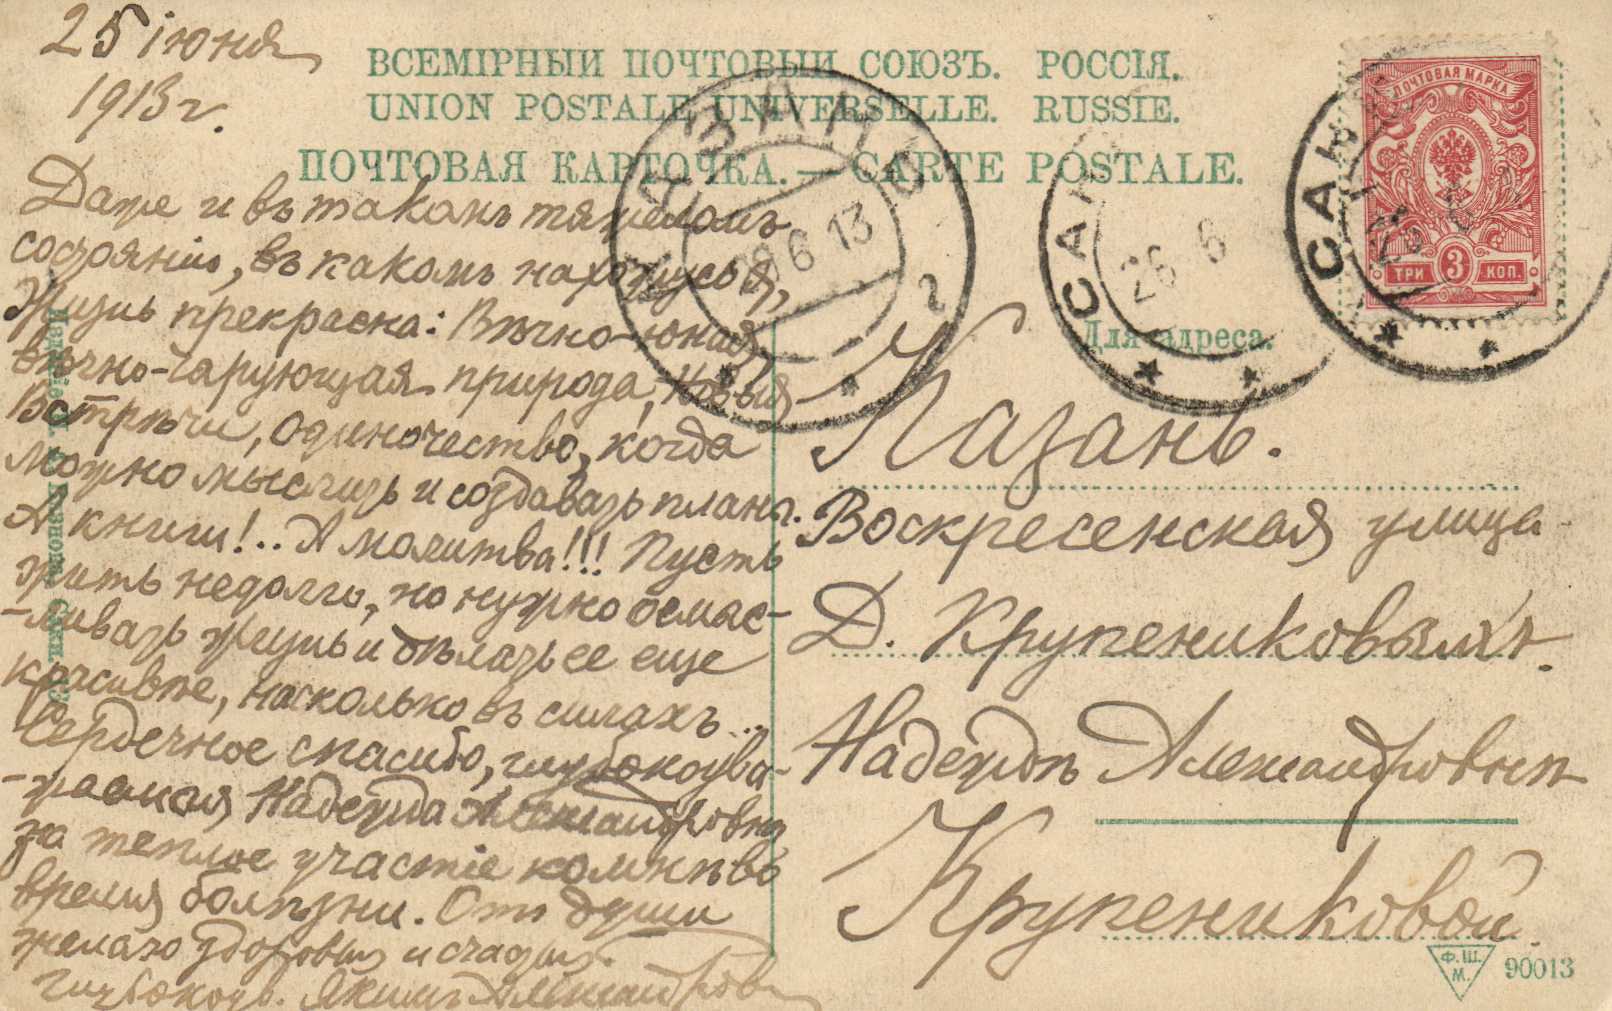 25 іюня
1913 г.
ВСЕМІРНЫЙ ПОЧТОВЫЙ СОЮЗЪ. РОССІЯ.
UNION POSTALE UNIVERSELLE. RUSSIE.
ПОЧТОВАЯ КАРТОЧКА. — CARTE POSTALE.
Даже и въ такомъ тяжеломъ
состояніи, въ какомъ нахожусь я,
жизнь прекрасна: Вѣчно-юная,
вѣчно-чарующая природа, новыя
встрѣчи, одиночество, когда
можно мыслить и создавать планы.
А книги!.. А молитва!!! Пусть
жить недолго, но нужно осмыс-
-ливать жизнь и дѣлать ее еще
красивѣе, насколько въ силахъ...
Сердечное спасибо, глубокоува-
-жаемая Надежда Александровна,
за теплое участіе ко мнѣ во
время болѣзни. Отъ души
желаю здоровья и счастья.
Глубокоув. Якимъ Александровъ
Для адреса.
Казань.
Воскресенская улица
Д. Крупениковыхъ.
Надеждѣ Александровнѣ
Крупениковой.
КАЗАНЬ
28 6 13
2
САН
26 6
САН
26 6
ПОЧТОВАЯ МАРКА
ТРИ 3 КОП.
Ф.Ш.
М.
90013